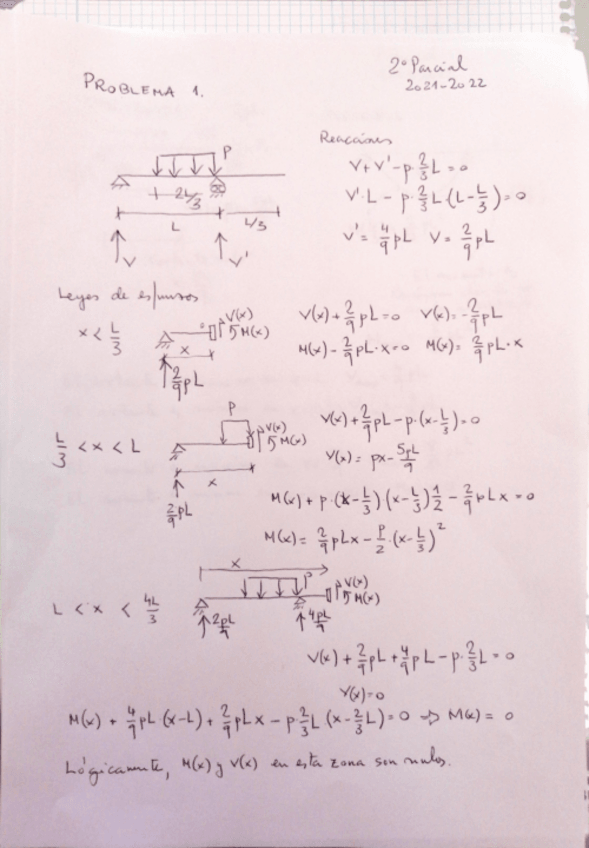 2º Parcial
2021-2022
PROBLEMA 1.
Reacciones
p
V+V'-p·2/3L=0
2L/3
V'·L - p·2/3L(L-L/3)=0
L
L/3
V'=4/9pL V=2/9pL
V
V'
Leyes de esfuerzos
x < L/3
V(x)
M(x)
x
2/9pL
V(x)+2/9pL=0 V(x)=-2/9pL
M(x)-2/9pL·x=0 M(x)=2/9pL·x
L/3 < x < L
P
V(x)
M(x)
x
2/9pL
V(x)+2/9pL-p·(x-L/3)=0
V(x)= px-5pL/9
M(x)+p·(x-L/3)(x-L/3)1/2-2/9pLx=0
M(x)=2/9pLx-p/2·(x-L/3)²
x
L < x < 4L/3
p
V(x)
M(x)
2pL/9
4pL/9
V(x)+2/9pL+4/9pL-p·2/3L=0
V(x)=0
M(x)+4/9pL(x-L)+2/9pLx-p·2/3L(x-2/3L)=0 ⇒ M(x)=0
Lógicamente, M(x) y V(x) en esta zona son nulos.